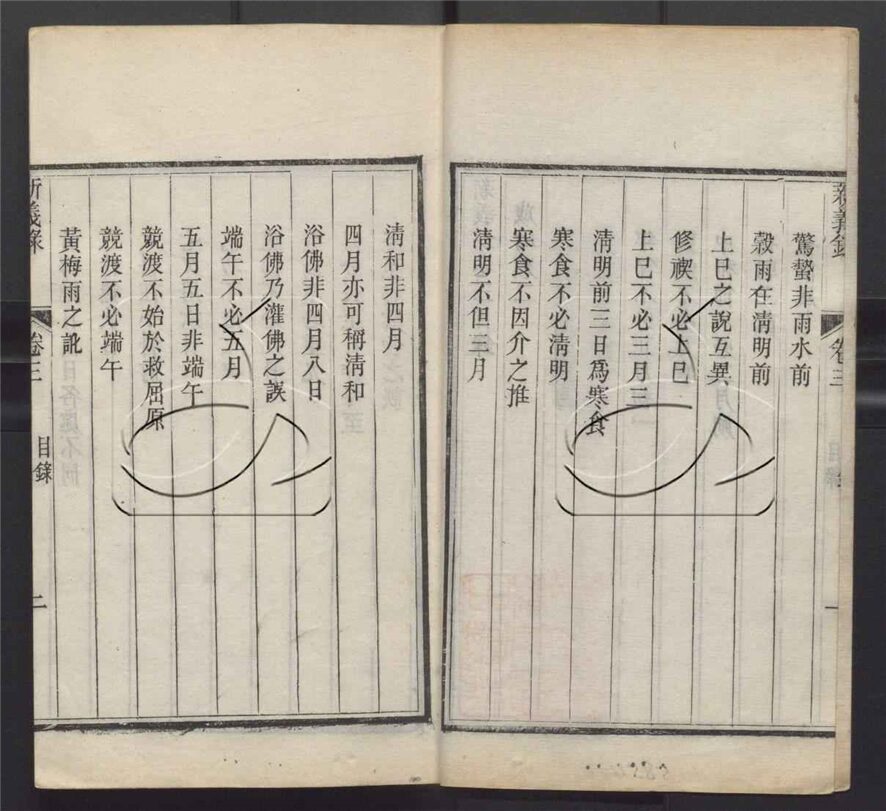 新義錄
卷三
目錄
一
驚蟄非雨水前
穀雨在清明前
上巳之說互異
修禊不必上巳
上巳不必三月三
清明前三日爲寒食
寒食不必清明
寒食不因介之推
清明不但三月
清和非四月
四月亦可稱清和
浴佛非四月八日
浴佛乃灌佛之誤
端午不必五月
五月五日非端午
競渡不始於救屈原
競渡不必端午
黃梅雨之訛
新義錄
卷三
目錄
二